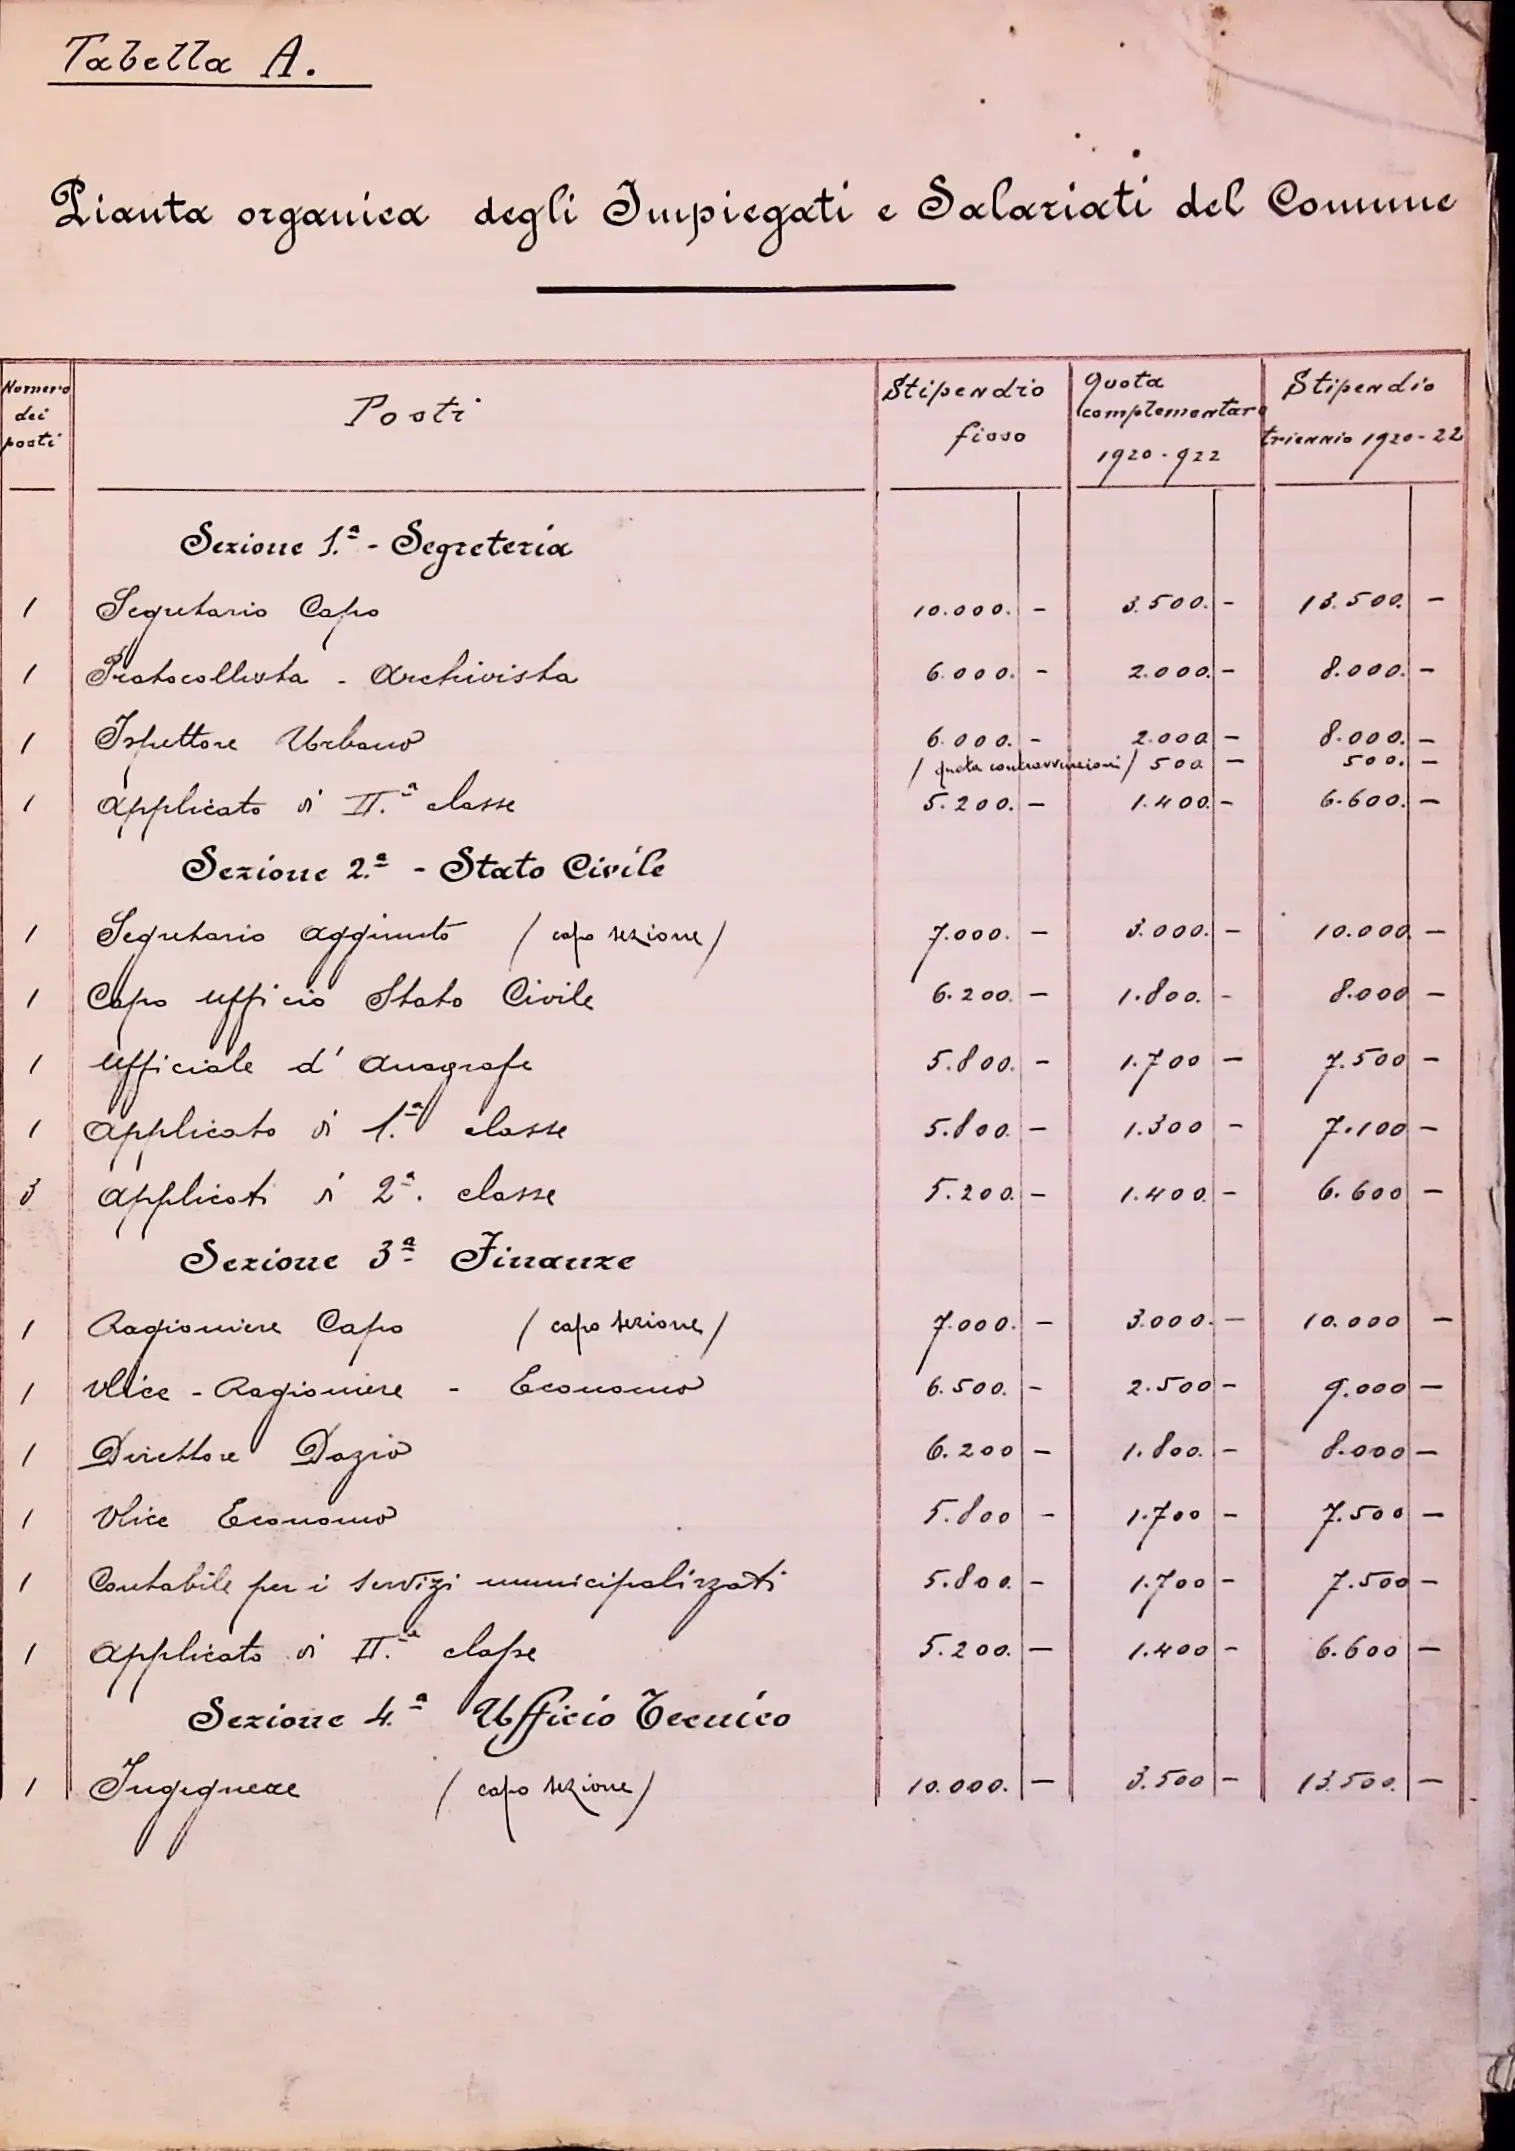 Tabella A.
Pianta organica degli Impiegati e Salariati del Comune
Numero dei posti Posti Stipendio fisso Quota complementare 1920-922 Stipendio triennio 1920-22
Sezione 1.ª - Segreteria
1 Segretario Capo 10.000. - 3.500. - 13.500. -
1 Protocollista - Archivista 6.000. - 2.000. - 8.000. -
1 Ispettore Urbano 6.000. - 2.000 - 8.000. -
/ quota contravvenzioni / 500 - 500. -
1 Applicato di II.ª classe 5.200. - 1.400. - 6.600. -
Sezione 2.ª - Stato Civile
1 Segretario aggiunto / capo sezione / 7.000. - 3.000. - 10.000 -
1 Capo ufficio Stato Civile 6.200. - 1.800. - 8.000 -
1 Ufficiale d'Anagrafe 5.800. - 1.700 - 7.500 -
1 Applicato di 1.ª classe 5.800. - 1.300 - 7.100 -
3 Applicati di 2ª. classe 5.200. - 1.400. - 6.600 -
Sezione 3ª Finanze
1 Ragioniere Capo / capo sezione / 7.000. - 3.000. - 10.000 -
1 Vice - Ragioniere - Economo 6.500. - 2.500 - 9.000 -
1 Direttore Dazio 6.200 - 1.800. - 8.000 -
1 Vice Economo 5.800 - 1.700 - 7.500 -
1 Contabile per i servizi municipalizzati 5.800. - 1.700 - 7.500 -
1 Applicato di II.ª classe 5.200. - 1.400 - 6.600 -
Sezione 4.ª Ufficio Tecnico
1 Ingegnere / capo sezione / 10.000. - 3.500 - 13.500. -